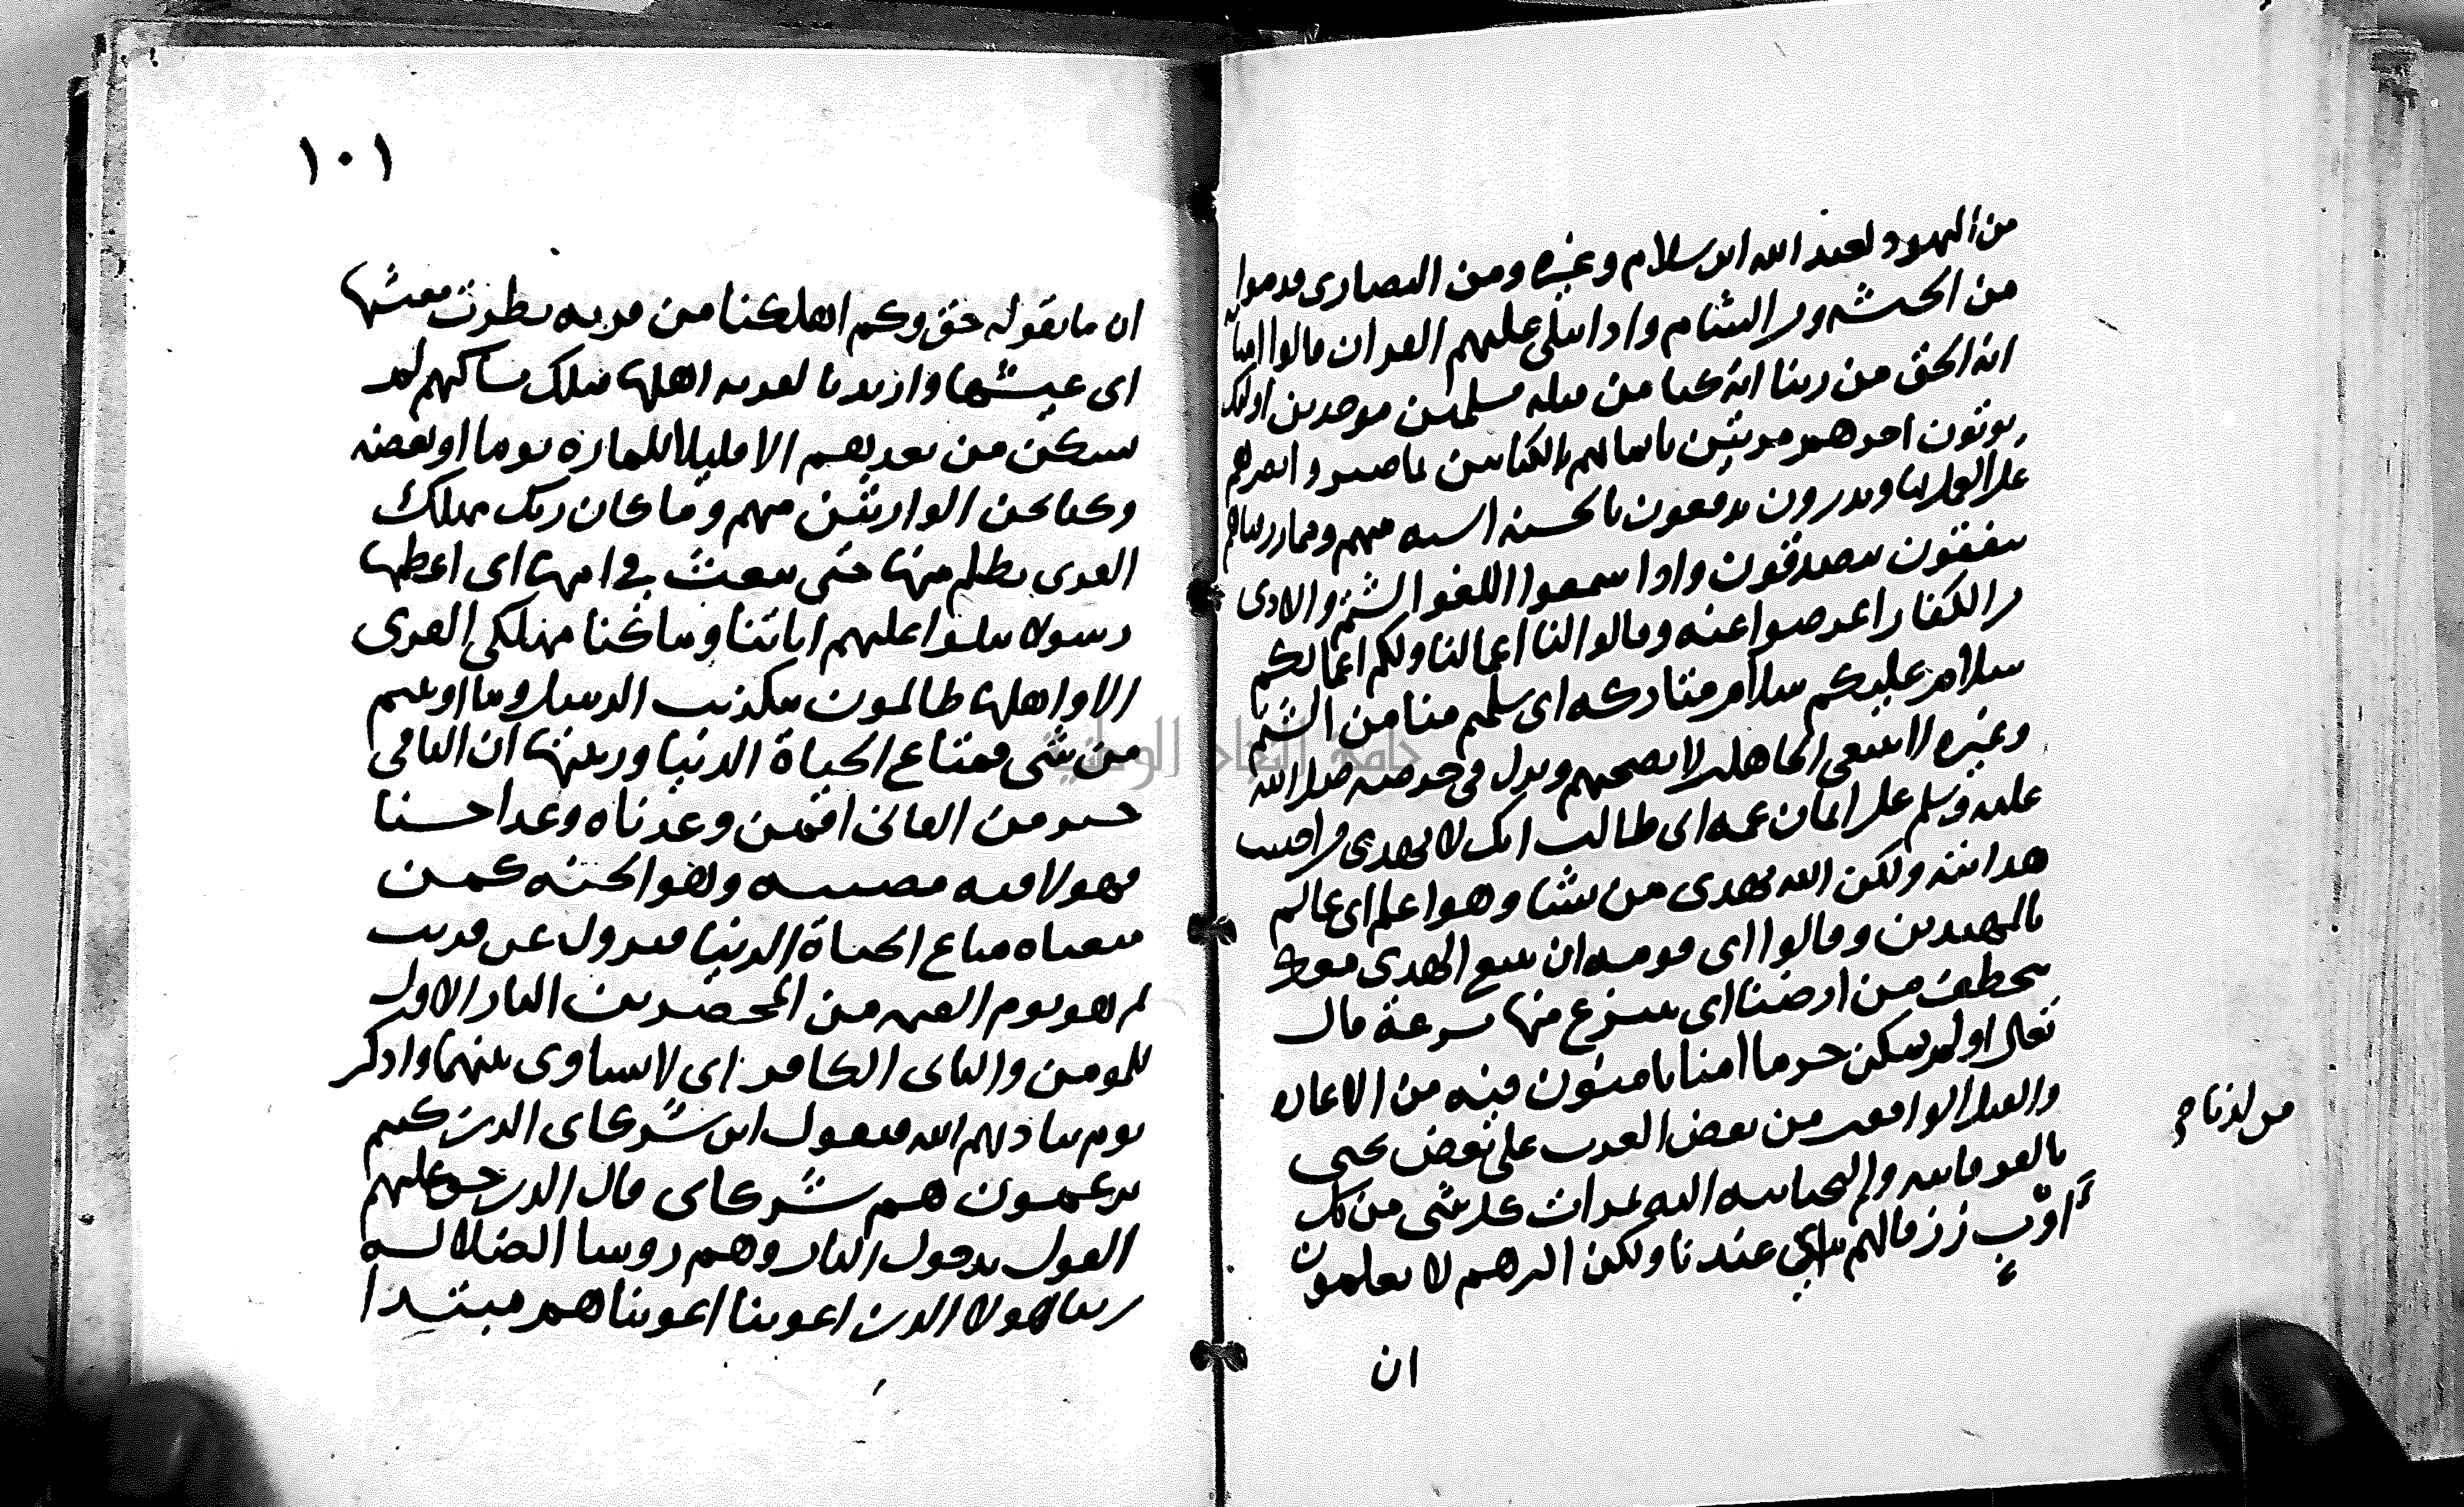 من اليهود كعبد الله ابن سلام وغيره ومن النصارى قدموا
من الحبشة ومن الشام واذا يتلى عليهم القران قالوا امنا به
انه الحق من ربنا انا كنا من قبله مسلمين موحدين اولئك
يوتون اجرهم مرتين بايمانهم بالكتابين بما صبروا بصبرهم
على العمل بهما ويدرون يدفعون بالحسنة السيه منهم ومما رزقناهم
ينفقون يتصدقون واذا سمعوا اللغو الشتم والاذى
من الكفار اعرضوا عنه وقالوا لنا اعمالنا ولكم اعمالكم
سلام عليكم سلام متاركه اى سلمتم منا من الشتم
وغيره لا نبتغى الجاهلين لا نصحبهم ونزل فى حرصه صلى الله
عليه وسلم على ايمان عمه ابى طالب انك لا تهدى من احببت
هدايته ولكن الله يهدى من يشا وهو اعلم اى عالم
بالمهتدين وقالوا اى قومه ان نتبع الهدى معك
نتخطف من ارضنا اى ننتزع منها بسرعة قال
تعالى اولم نمكن حرما امنا يامنون فيه من الاغاره
والقتل الواقعين من بعض العرب على بعض تجبى
بالفوقانيه والتحتانيه اليه ثمرات كل شى من كل
اوب رزقا لهم اى عندنا ولكن اكثرهم لا يعلمون
من لدنا صح
ان
١٠١
ان ما نقوله حق وكم اهلكنا من قرية بطرت معيشتها
اى عيشها واريد بالقرية اهلها فتلك مساكنهم لم
تسكن من بعدهم الا قليلا للمارة يوما او بعضه
وكنا نحن الوارثين منهم وما كان ربك مهلك
القرى بظلم منها حتى يبعث في امها اى اعظمها
رسولا يتلوا عليهم اياتنا وما كنا مهلكى القرى
الا واهلها ظالمون بتكذيب الرسل وما اوتيتم
من شى فمتاع الحياة الدنيا وزينتها ان الباقى
خير من الفانى افمن وعدناه وعدا حسنا
فهو لاقيه مصيبه وهو الجنه كمن
متعناه متاع الحياة الدنيا فيزول عن قريب
ثم هو يوم القيمه من المحضرين النار الاول
المومن والثانى الكافر اى لا تساوى بينهما واذكر
يوم يناديهم الله فيقول اين شركاى الذين كنتم
تزعمون هم شركاى قال الذين حق عليهم
القول بدخول النار وهم روسا الضلاله
ربنا هولا الذين اغوينا اغويناهم مبتدا
جامعة النجاح الوطنية